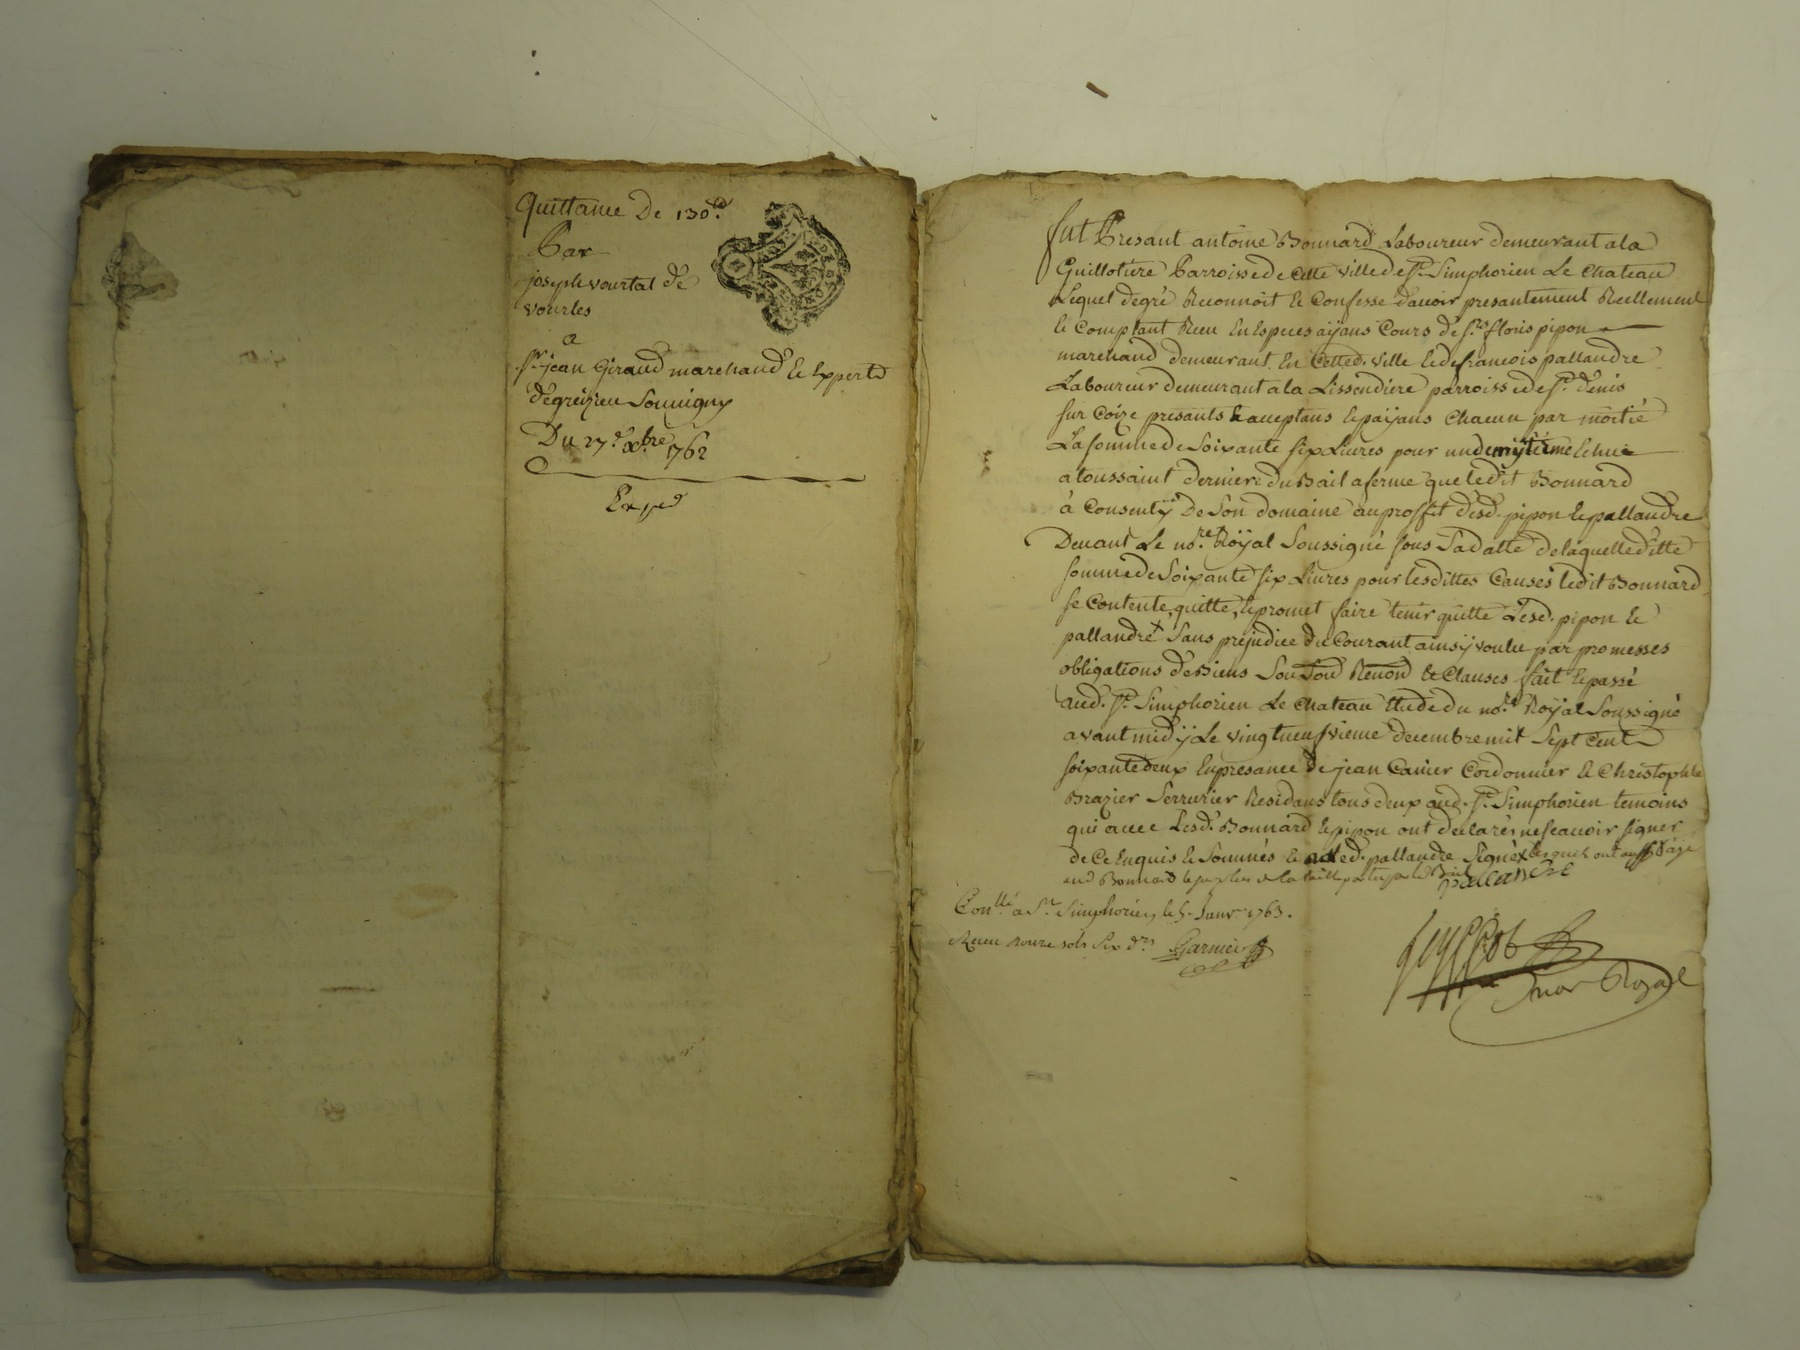 Quittance De 130ᵗᵗ
Par
joseph vourtat de
vourles
a
sʳ jean Giraud marchand & Expert
degreizieu Souvigny
Du 27ᵉ xbre 1762
Exped
fut Presant antoine Bonnard Laboureur demeurant ala
Guillotiere Parroisse de Cette ville de sᵗ. Simphorien Le Chateau
Lequel degré Reconnoit & Confesse davoir presantement Reellement
& Comptant Receu En Especes aÿans Cours de sʳˢ floris pipon
marchand demeurant En Cetted. ville & de francois pallandre
Laboureur demeurant ala Lissendire parroisse de sᵗ. denis
sur Coize presants & acceptans & païjans Chacun par moitié
La somme de Soixante six Livres pour un demÿ terme Echeu
a toussaint derniere du Bail a ferme que ledit Bonnard
à Consentÿ De Son domaine au proffit desd. pipon & pallandre
Devant Le noʳᵉ Roÿal Soussigné sous Sa datte de laquelle ditte
somme de Soixante six Livres pour lesdittes Causes ledit Bonnard
se Contente, quitte, & promet faire tenir quitte Lesd. pipon &
pallandre x Sans prejudice du Courant ainsÿ voulu par promesses
obligations de Biens Sou Soud Renond & Clauses fait & passé
aud. sᵗ. Simphorien Le Chateau Etude du noʳᵉ Roÿal Soussigné
avant midÿ Le vingt neufvieme decembre mil Sept Cent
soixante deux En presance de jean Cancer Cordonnier & Christophle
Brazier Serrurier Residans tous deux aud. sᵗ. Simphorien temoins
qui avec Lesd. Bonnard & pipon ont declarés ne scavoir signer
de Ce Enquis & Sommés & led. pallandre Signé x lesquels ont
aud Bonnard
pallandre
Conˡˡᵉ a Sᵗ Simphorien le 5. Janvʳ 1763.
Receu douze sols six dʳˢ Garnier
noʳ Royal